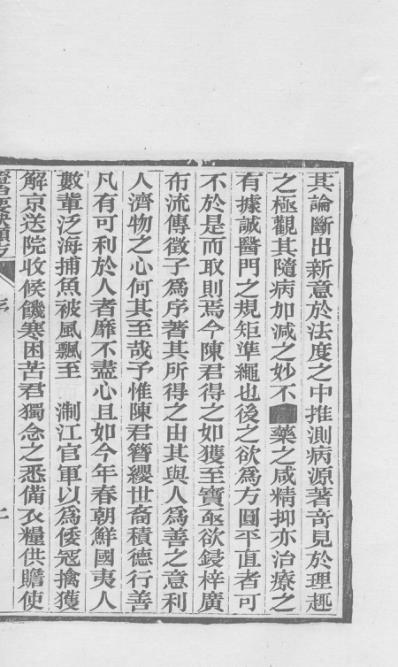 其論斷出新意於法度之中推測病源著竒見於理趣
之極觀其隨病加減之妙不 藥之咸精抑亦治療之
有據誠醫門之規矩準繩也後之欲爲方圓平直者可
不於是而取則焉今陳君得之如獲至寳亟欲鋟梓廣
布流傳徵子爲序著其所得之由其與人爲善之意利
人濟物之心何其至哉予惟陳君簪纓世裔積德行善
凡有可利於人者靡不盡心且如今年春朝鮮國夷人
數輩泛海捕魚被風飄至 淛江官軍以爲倭冦擒獲
解京送院收候饑寒困苦君獨念之悉備衣糧供贍使
序